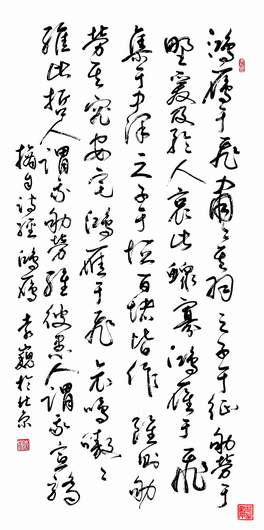 鴻雁于飛肅々其羽之子于征劬勞于
野爰及矜人哀此鰥寡鴻雁于飛
集于中澤之子于垣百堵皆作雖則劬
勞其究安宅鴻雁于飛哀鳴嗷々
維此哲人謂我劬勞維彼愚人謂我宣驕
摘自詩經鴻雁 巍於北京